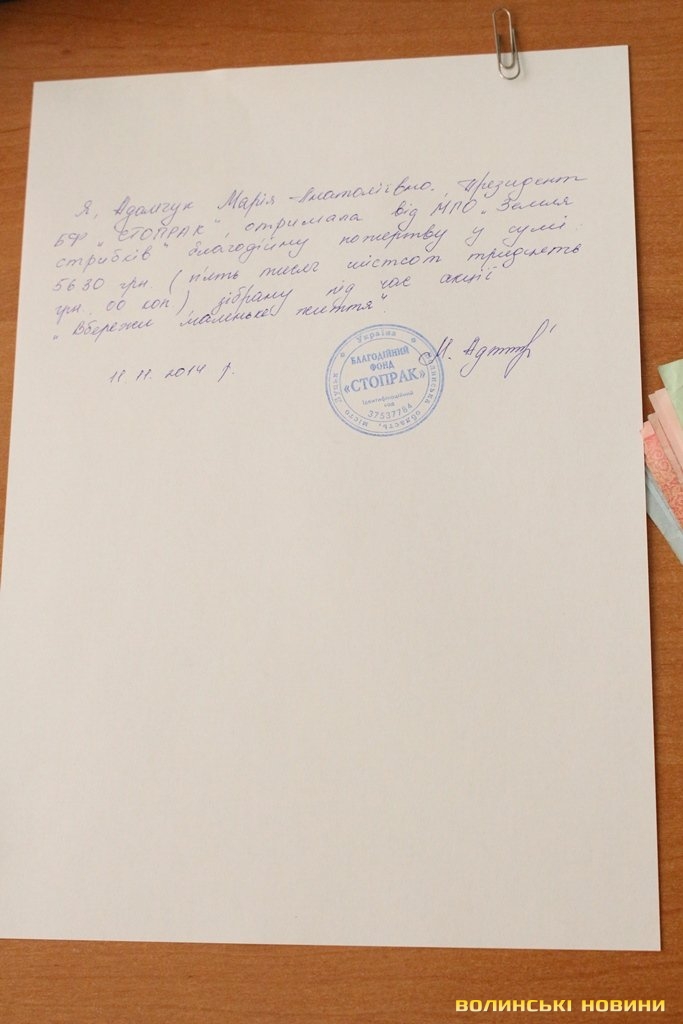 Я, Адамчук Марія Анатоліївна, Президент
БФ „СТОПРАК", отримала від МГО „Земля
стрибків" благодійну пожертву у сумі
5630 грн. (п'ять тисяч шістсот тридцять
грн. 00 коп) зібрану під час акції
„Вбережи маленьке життя".
11.11.2014 р.
М. Адам
Україна
Волинська область, місто Луцьк
БЛАГОДІЙНИЙ
ФОНД
«СТОПРАК»
Ідентифікаційний
код
37537764
ВОЛИНСЬКІ НОВИНИ